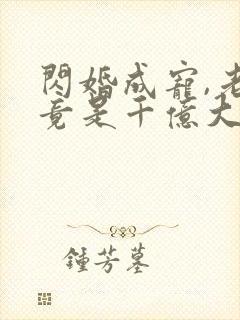 閃婚成寵,老
竟是千億大
鍾芳墓